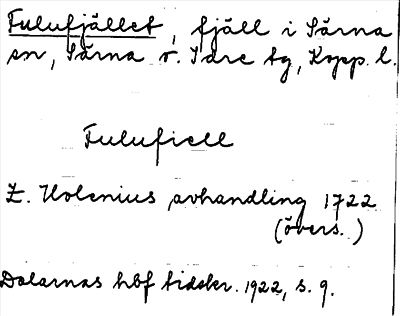 Fulufjället, fjäll i Särna
sn, Särna o. Idre tg, Kopp. l.
Fulufiell
Z. Holenius avhandling 1722
(övers.)
Dalarnas hbf tidskr. 1922, s. 9.